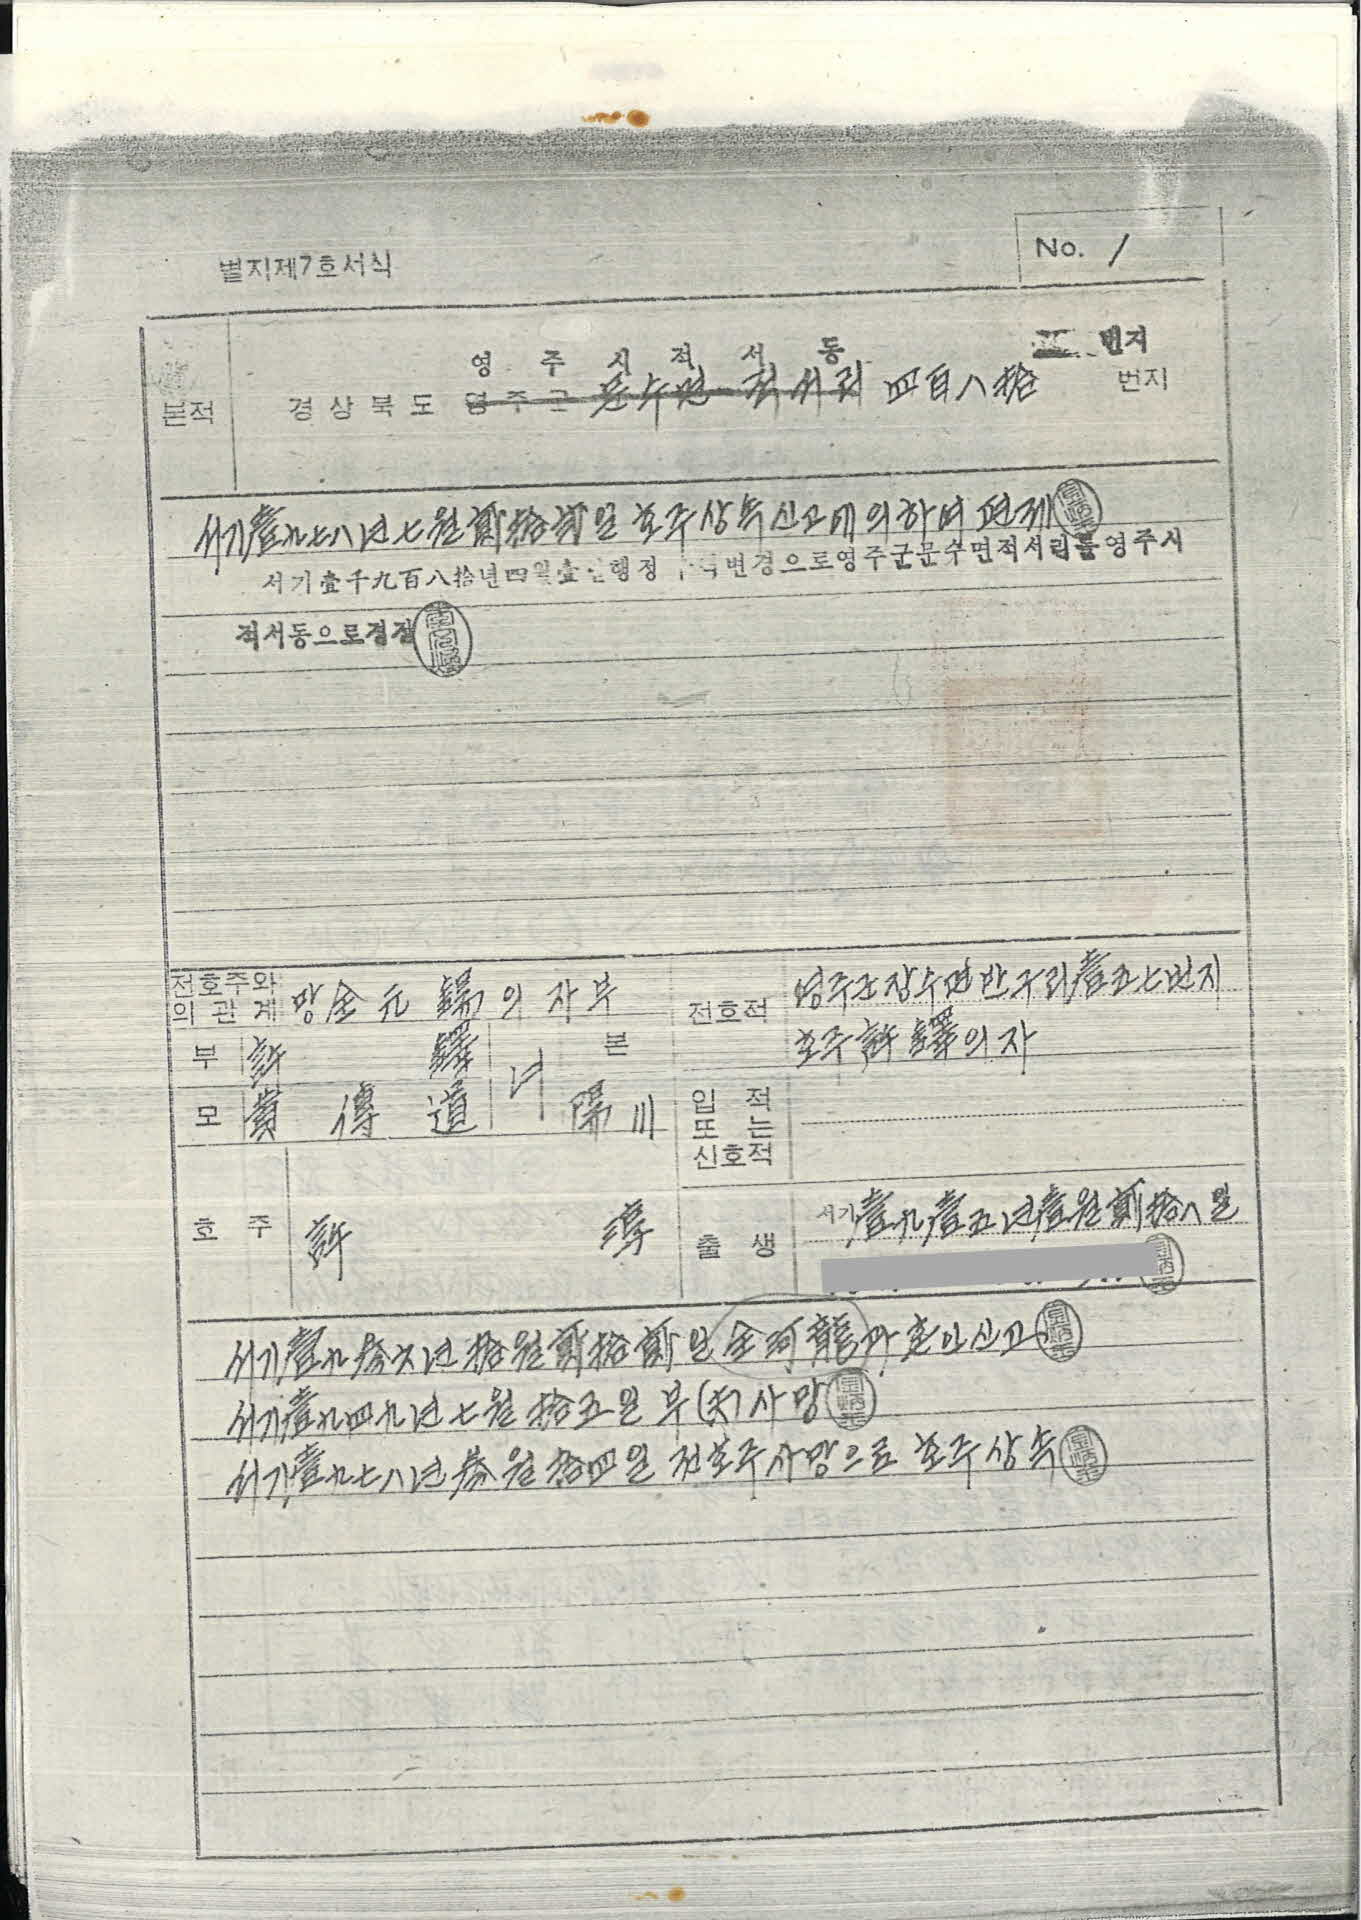 별지제7호서식
No. 1
영주시적서동 번지
본적 경상북도 영주군 문수면 적서리 四百八拾 번지
서기壹九七八년七월貳拾貳일 호주상속신고에의하여 편제
서기壹千九百八拾년四월壹일行정 변경으로영주군문수면적서리를영주시
적서동으로경정
전호주와의 관계 망金元錫의 자부
전호적 영주군장수면반구리壹五七번지
호주許鐸의자
부 許鐸
모 黃傳道
녀
본 陽川
입적 또는 신호적
호주 許
출생 서기壹九壹五년壹월貳拾八일
서기壹九參六년拾월貳拾貳일 金河龍과 혼인신고
서기壹九四九년七월拾五일 부(夫)사망
서기壹九七八년參월拾四일 전호주사망으로 호주상속